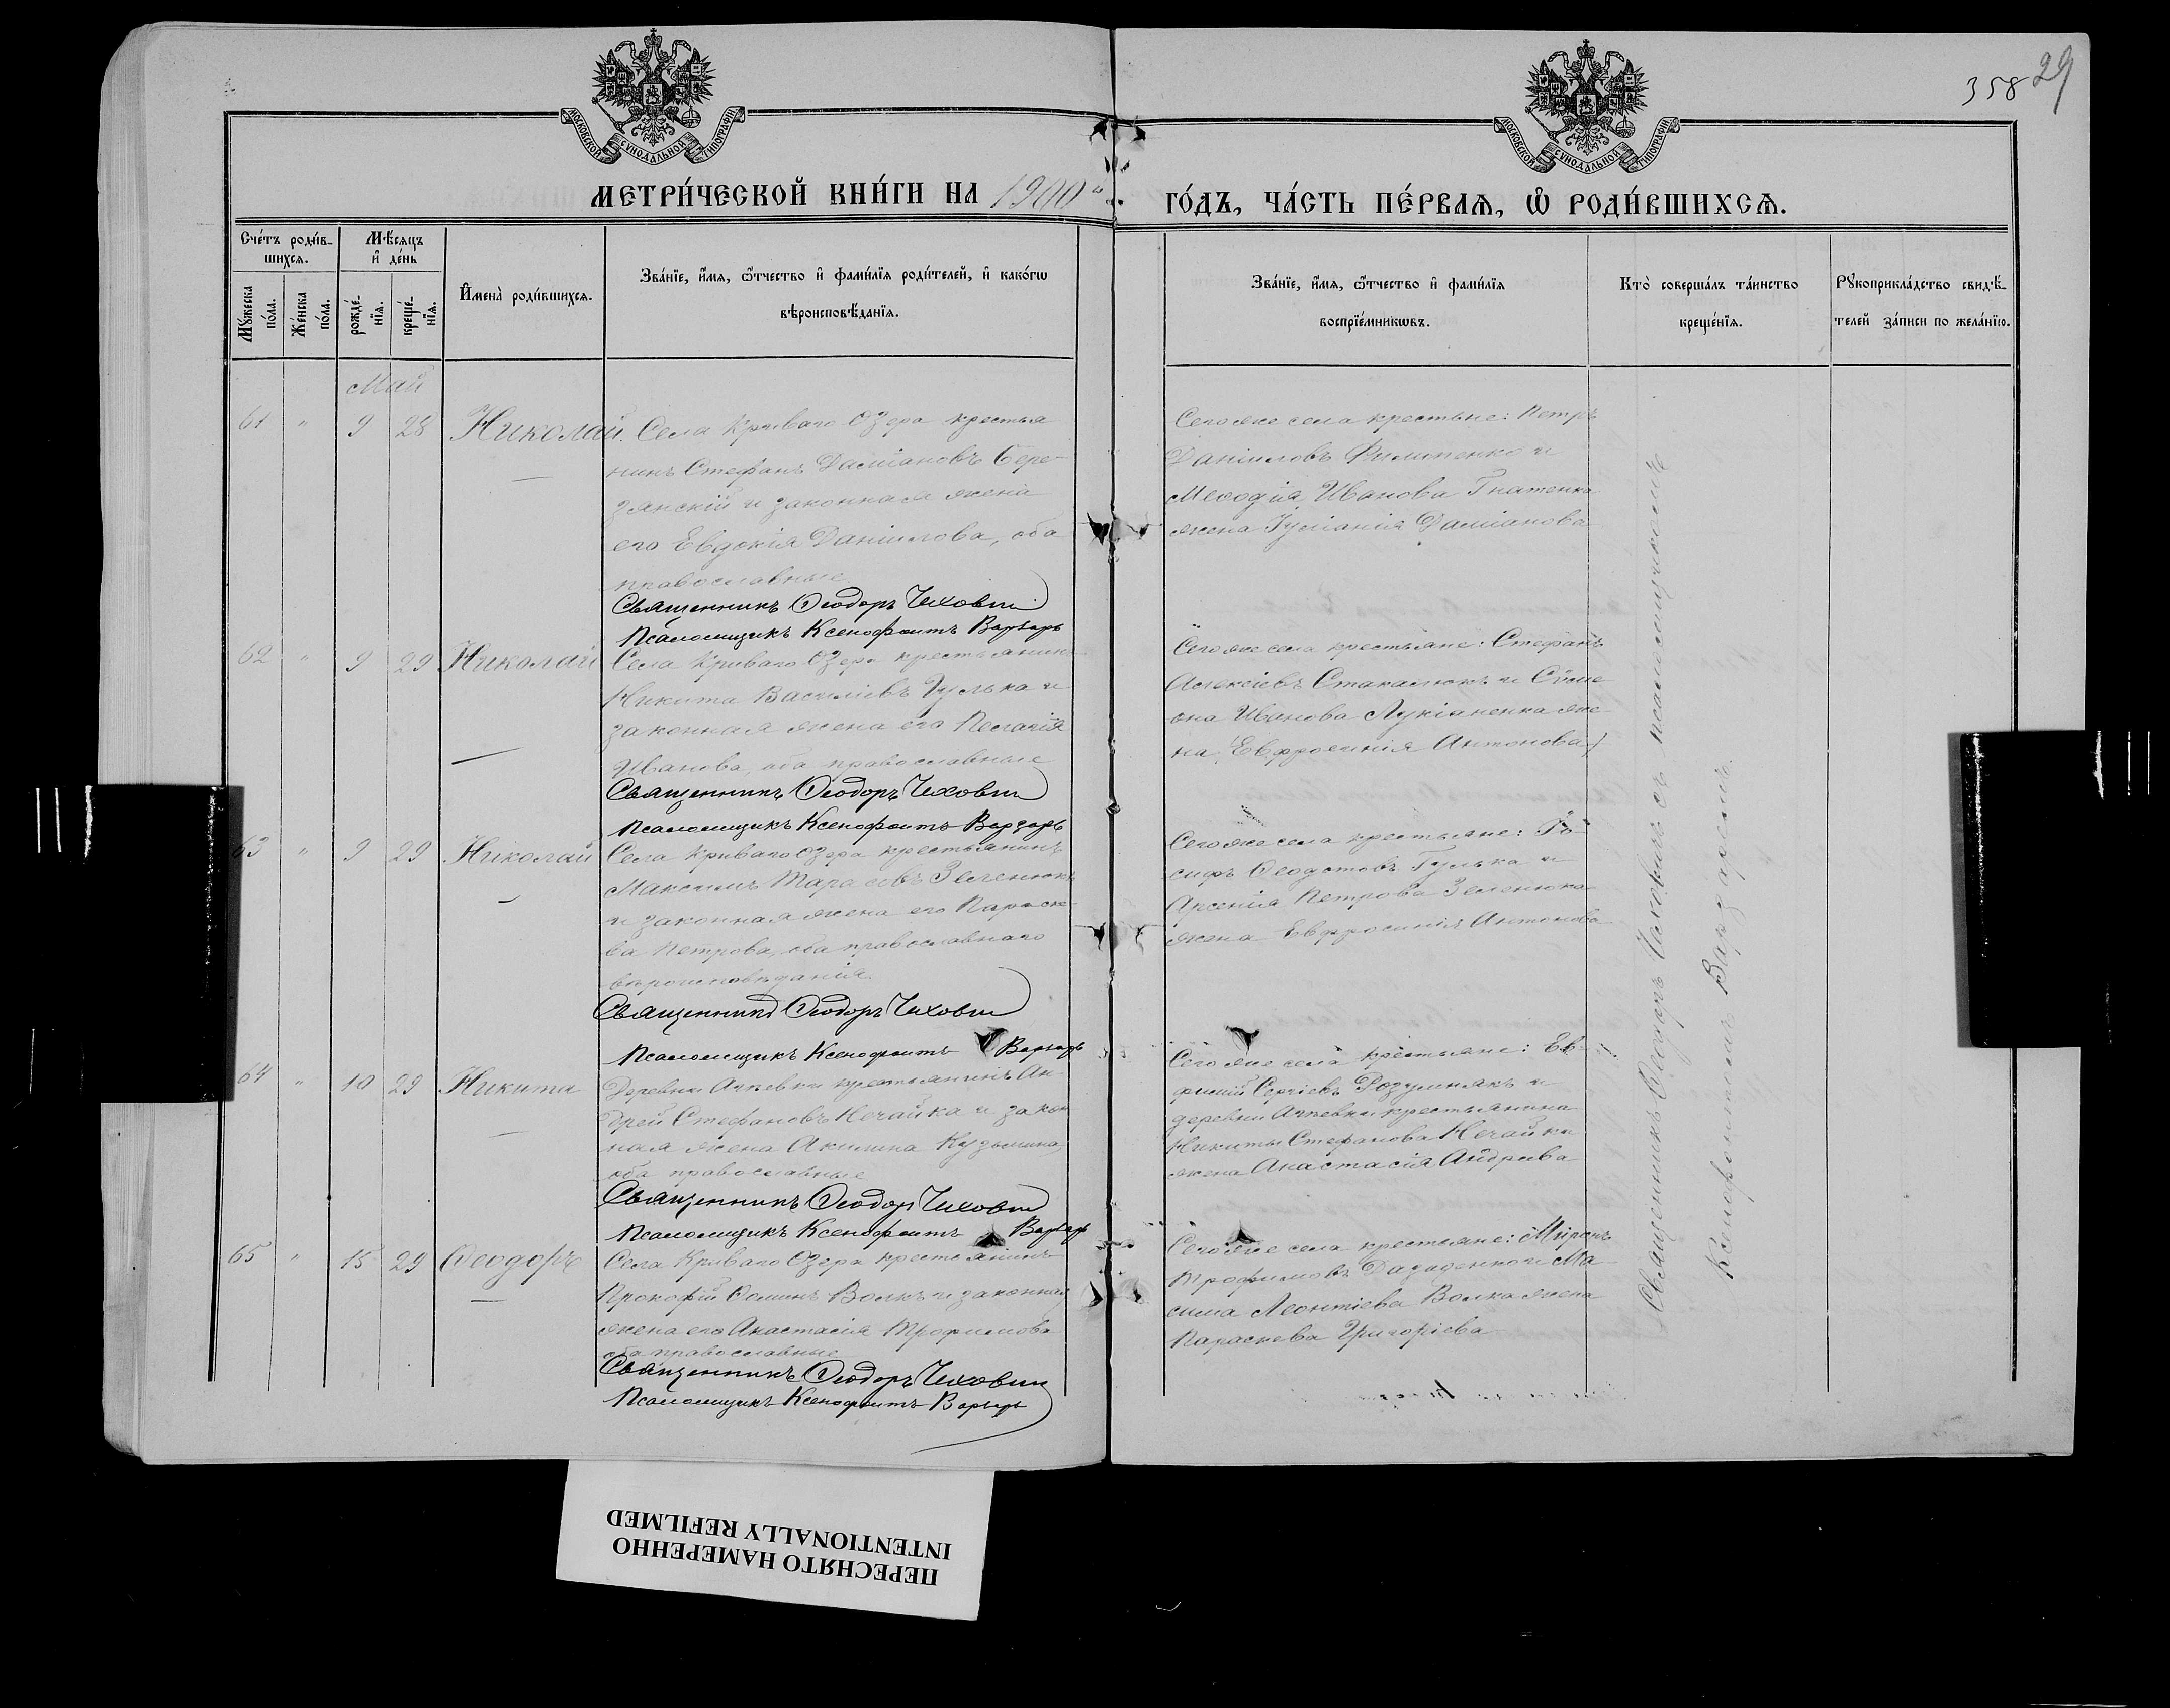 358 29
МОСКОВСКОЙ СУНОДАЛЬНОЙ ТИПОГРАФІИ
МОСКОВСКОЙ СУНОДАЛЬНОЙ ТИПОГРАФІИ
МЕТРИ́ЧЕСКОЙ КНИ́ГИ НА 1900
ГО́ДЪ, ЧА́СТЬ ПЕ́РВАЯ, Ѡ РОДИ́ВШИХСЯ.
Сче́тъ роди́в-
шихся.
Мѣсяцъ
и де́нь
Му́жеска по́ла.
Же́нска по́ла.
рожде́-
нїя.
креще́-
нїя.
Имена̀ роди́вшихся.
Зва́нїе, и́мя, ѻ́тчество и фами́лїя роди́телей, и како́гѡ
вѣроисповѣ́данїя.
Зва́нїе, и́мя, ѻ́тчество и фами́лїя
воспрїе́мникѡвъ.
Кто̀ соверша́лъ та́инство
креще́нїя.
Рукоприкла́дство свидѣ́-
телей за́писи по жела́нїю.
Май
61 " 9 28 Николай. Села Криваго Озера крестья
нинъ Стефанъ Даміановъ Бере-
занскій и законная жена
его Евдокія Даніилова, оба
православные
Священникъ Ѳеодоръ Чехович
Псаломщикъ Ксенофонтъ Варзарь
Сего же села крестьяне: Петръ
Даніиловъ Филипенко и
Меѳодія Иванова Гнатенка
жена Іуліанія Даміанова
62 " 9 29 Николай Села Криваго Озера крестьянинъ
Никита Василіевъ Гулька и
законная жена его Пелагія
Иванова, оба православные
Священникъ Ѳеодоръ Чехович
Псаломщикъ Ксенофонтъ Варзарь
Сего же села крестьяне: Стефанъ
Алексіевъ Стакалюкъ и Сѵме
она Иванова Лукіаненка же
на Евфросинія Антонова
63 " 9 29 Николай Села Криваго Озера крестьянинъ
Максимъ Тарасовъ Зеленюкъ
и законная жена его Параске
ва Петрова, оба православнаго
вѣроисповѣданія.
Священникъ Ѳеодоръ Чехович
Псаломщикъ Ксенофонтъ Варзарь
Сего же села крестьяне: Іо
сифъ Ѳеодотовъ Гулька и
Арсенія Петрова Зеленюка
жена Евфросинія Антонова
64 " 10 29 Никита Деревни крестьянинъ Ан-
дрей Стефановъ Нечайка и закон
ная жена Акилина Кузьмина
оба православные
Священникъ Ѳеодоръ Чехович
Псаломщикъ Ксенофонтъ Варзарь
Сего же села крестьяне: Ев-
фимій Сергіевъ Розумнякъ и
деревни крестьянина
Никиты Стефанова Нечайки
жена Анастасія Андреева
65 " 15 29 Ѳеодоръ Села Криваго Озера крестьянинъ
Прокофій Ѳоминъ Волкъ и законная
жена его Анастасія Трофимова
оба православные
Священникъ Ѳеодоръ Чехович
Псаломщикъ Ксенофонтъ Варзарь
Сего же села крестьяне: Миронъ
Трофимовъ и Ма-
сима Леонтіева Волка жена
Параскева Григоріева
Священникъ Ѳеодоръ Чеховичъ съ псаломщикомъ
Ксенофонтомъ Варзаремъ.
ПЕРЕСНЯТО НАМЕРЕННО
INTENTIONALLY REFILMED